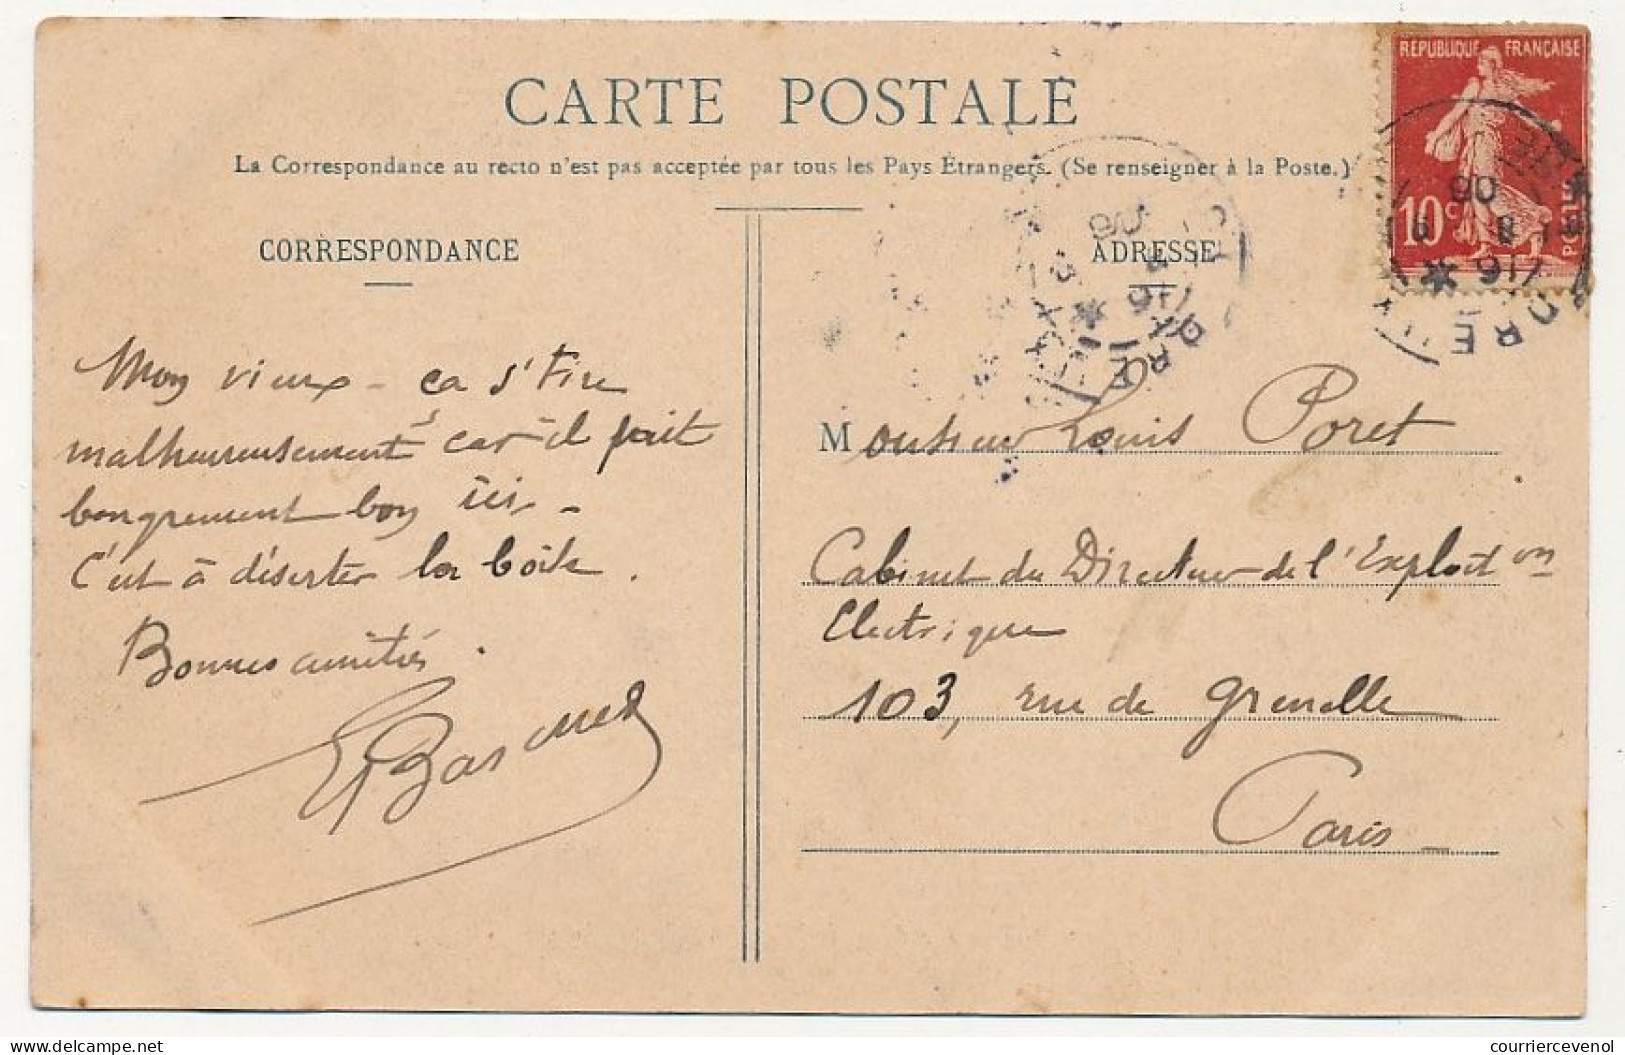 CARTE POSTALE
La Correspondance au recto n'est pas acceptée par tous les Pays Étrangers. (Se renseigner à la Poste.)
CORRESPONDANCE
Mon vieux - ça s'tire
malheureusement car il fait
bougrement bon ici -
C'est à déserter la boîte.
Bonnes amitiés.
ADRESSE
Monsieur Louis Poret
Cabinet du Directeur de l'Exploiton
Electrique
103, rue de Grenelle
Paris -
REPUBLIQUE FRANÇAISE
10c
POSTES
06
couriercevenol.delcampe.net
courriercevenol